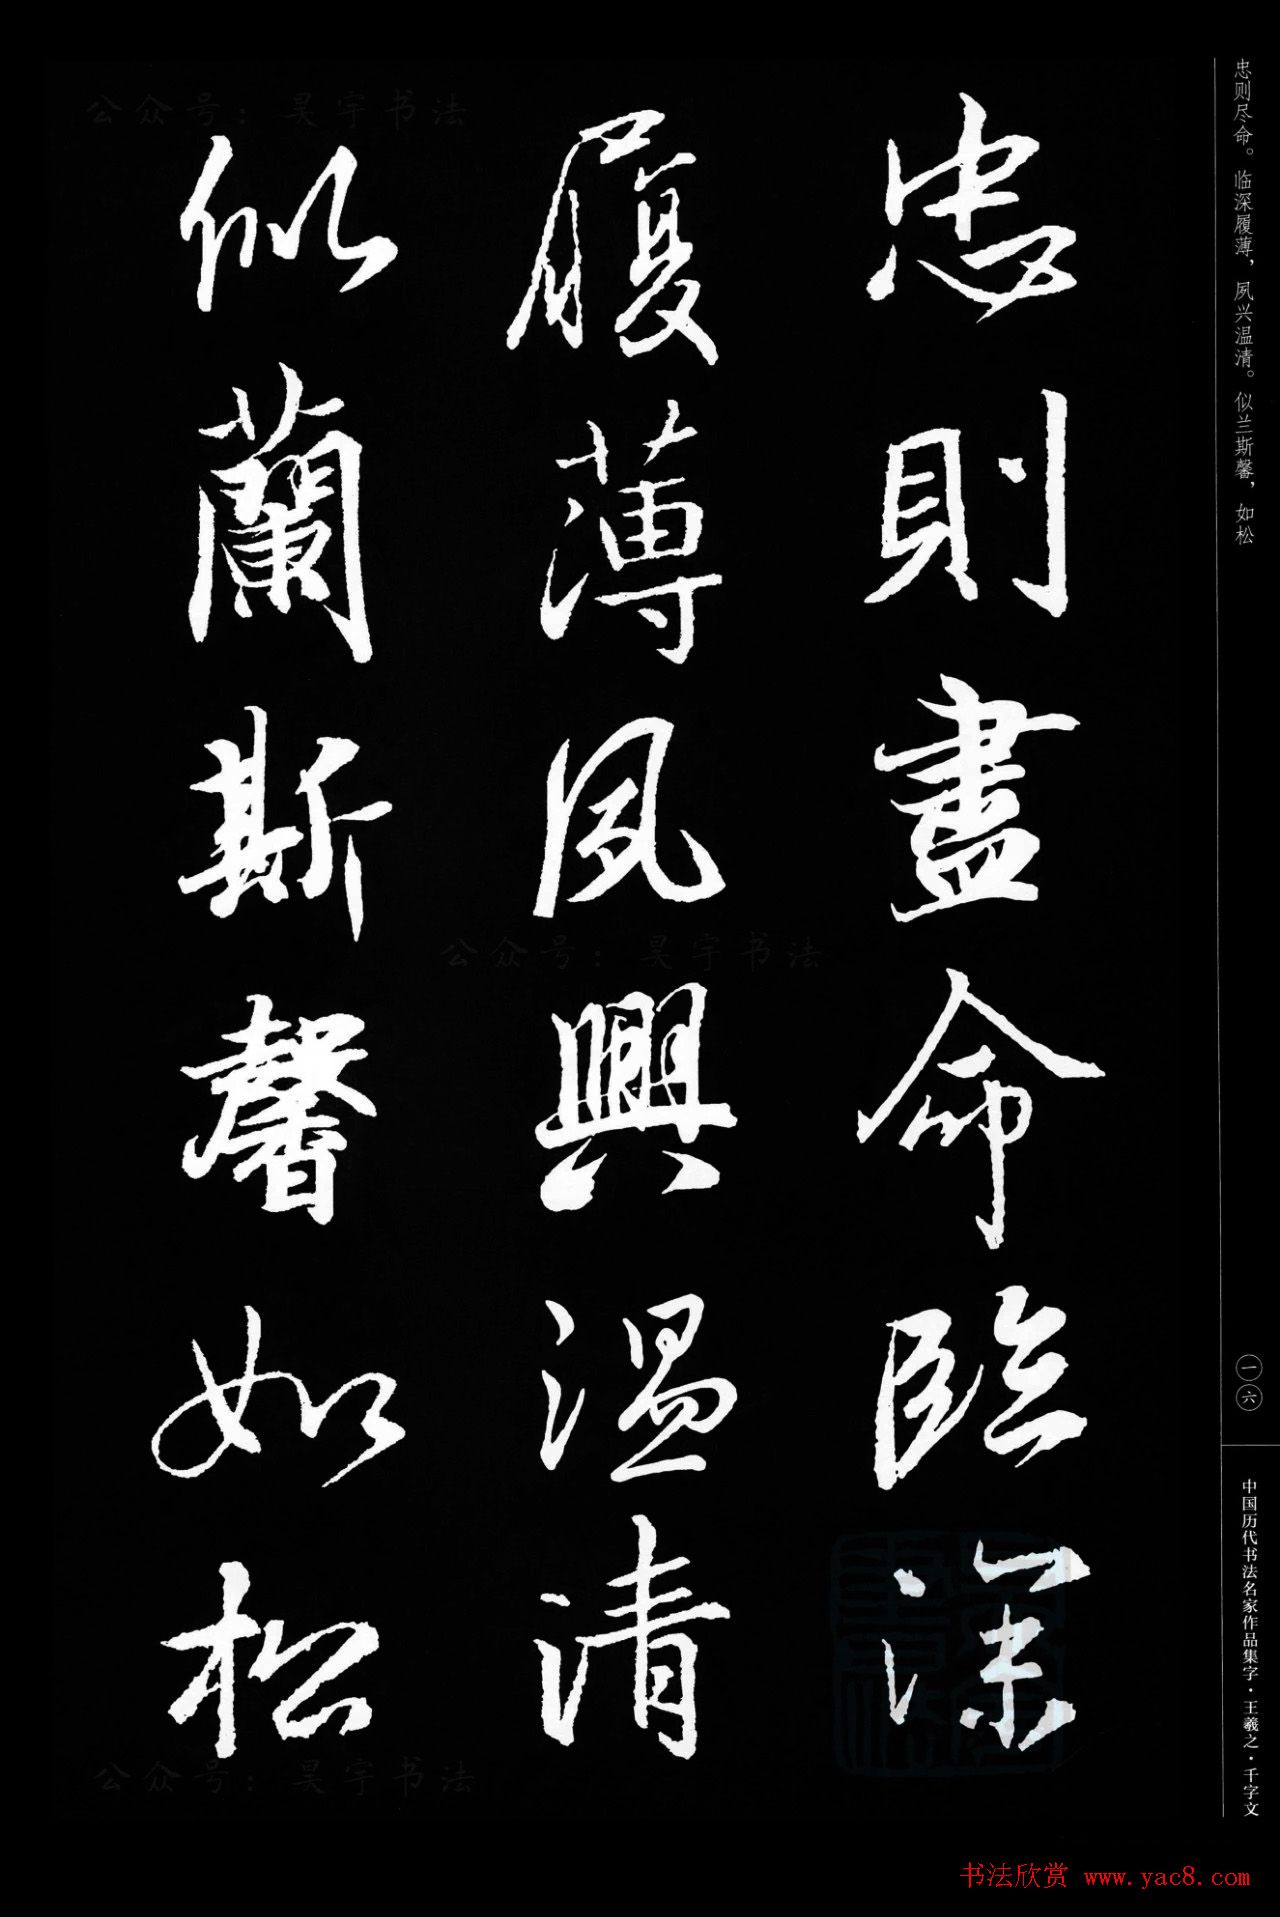 忠則盡命臨深
履薄夙興溫清
似蘭斯馨如松
忠则尽命。临深履薄，夙兴温清。似兰斯馨，如松
一六
中国历代书法名家作品集字·王羲之·千字文
公众号：昊宇书法
公众号：昊宇书法
公众号：昊宇书法
书法欣赏 www.yac8.com